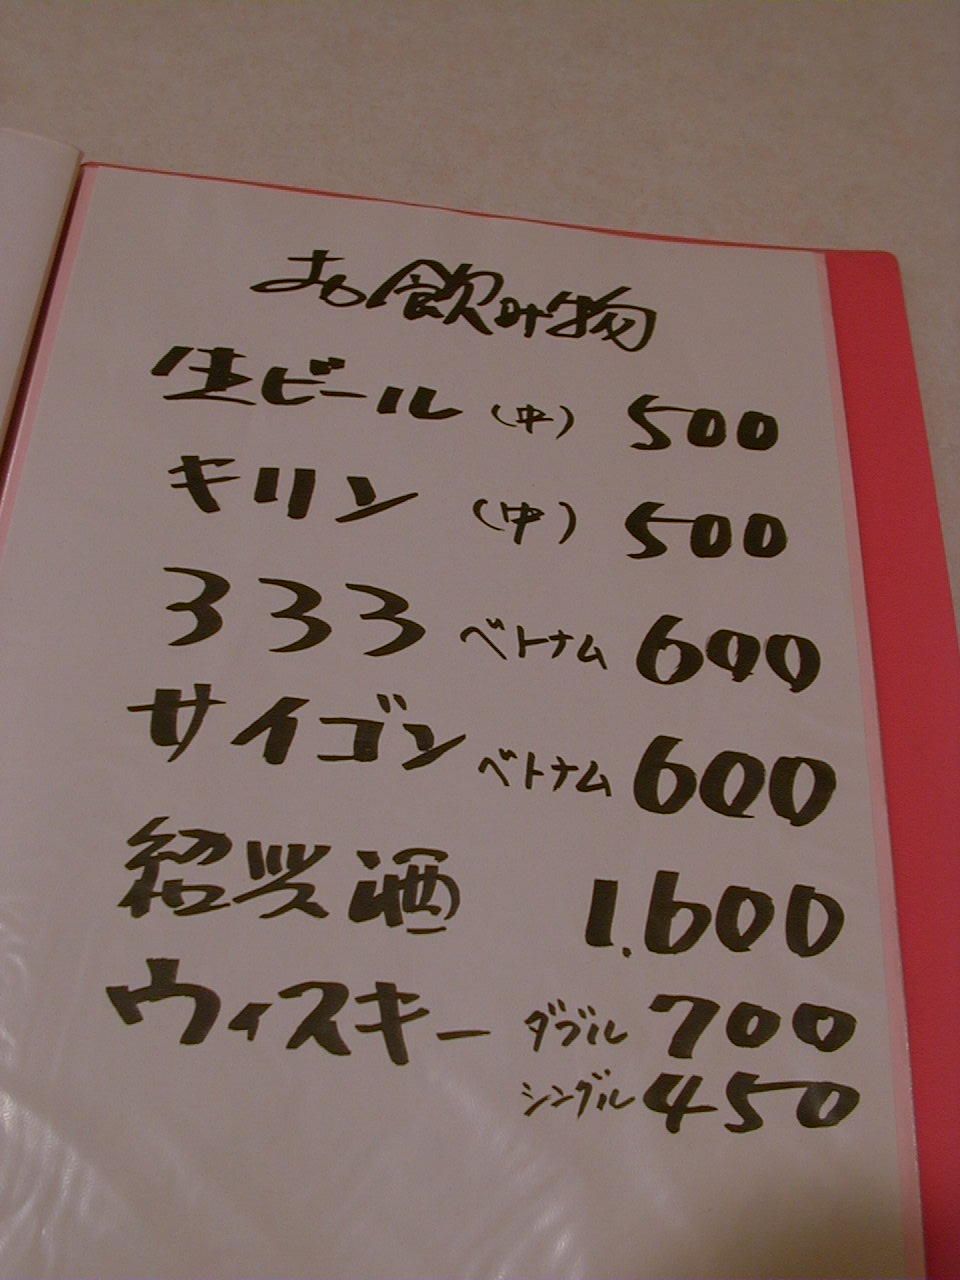 お飲み物
生ビール (中) 500
キリン (中) 500
333 ベトナム 600
サイゴン ベトナム 600
紹興酒 1.600
ウィスキー ダブル 700
シングル 450